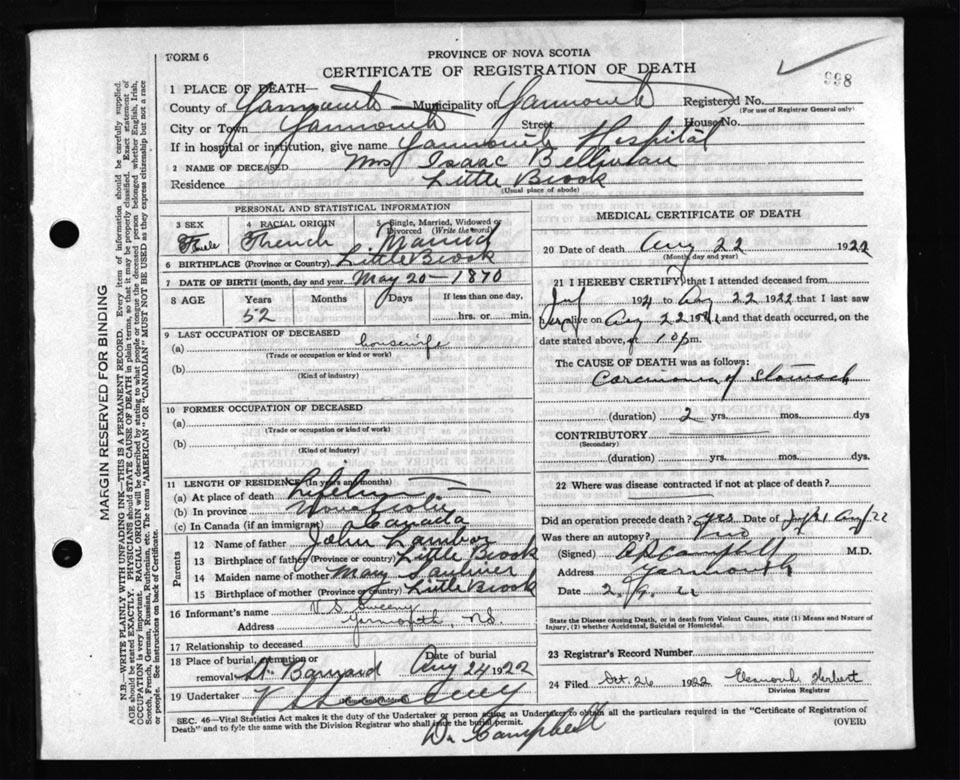 FORM 6
PROVINCE OF NOVA SCOTIA
CERTIFICATE OF REGISTRATION OF DEATH
998
1 PLACE OF DEATH—
County of Yarmouth Municipality of Yarmouth Registered No.
(For use of Registrar General only)
City or Town Yarmouth Street House No.
If in hospital or institution, give name Yarmouth Hospital
2 NAME OF DECEASED Mrs Isaac Belliveau
Residence Little Brook
(Usual place of abode)
PERSONAL AND STATISTICAL INFORMATION
3 SEX 4 RACIAL ORIGIN 5 Single, Married, Widowed or Divorced (Write the word)
French Married
6 BIRTHPLACE (Province or Country) Little Brook
7 DATE OF BIRTH (month, day and year) May 20 - 1870
8 AGE Years Months Days If less than one day,
52 hrs. or min.
9 LAST OCCUPATION OF DECEASED
(a) housewife
(Trade or occupation or kind of work)
(b)
(Kind of industry)
10 FORMER OCCUPATION OF DECEASED
(a)
(Trade or occupation or kind of work)
(b)
(Kind of industry)
11 LENGTH OF RESIDENCE (In years and months)
(a) At place of death
(b) In province Nova Scotia
(c) In Canada (if an immigrant) Canada
Parents
12 Name of father John
13 Birthplace of father (Province or country) Little Brook
14 Maiden name of mother Mary Saulnier
15 Birthplace of mother (Province or country) Little Brook
16 Informant's name V S Sweeny
Address Yarmouth, N.S.
17 Relationship to deceased
18 Place of burial, cremation or removal Date of burial
St. Barnard Aug 24 1922
19 Undertaker
MEDICAL CERTIFICATE OF DEATH
20 Date of death Aug 22 1922
(Month, day and year)
21 I HEREBY CERTIFY that I attended deceased from
1921 to Aug 22 1922 that I last saw
her alive on Aug 22 and that death occurred, on
date stated above, at 10 p m.
The CAUSE OF DEATH was as follows:
Carcinoma of Stomach
(duration) 2 yrs. mos. dys
CONTRIBUTORY
(Secondary)
(duration) yrs. mos. dys.
22 Where was disease contracted if not at place of death?
Did an operation precede death? yes Date of
Was there an autopsy? no
(Signed) Campbell M.D.
Address Yarmouth
Date
State the Disease causing Death, or in death from Violent Causes, state (1) Means and Nature of Injury, (2) whether Accidental, Suicidal or Homicidal.
23 Registrar's Record Number
24 Filed Oct. 26 1922 Herbert
Division Registrar
SEC. 46—Vital Statistics Act makes it the duty of the Undertaker or person acting as Undertaker to obtain all the particulars required in the "Certificate of Registration of
Death" and to fyle the same with the Division Registrar who shall issue the burial permit. (OVER)
Dr Campbell
MARGIN RESERVED FOR BINDING
N.B.—WRITE PLAINLY WITH UNFADING INK—THIS IS A PERMANENT RECORD. Every item of information should be carefully supplied.
AGE should be stated EXACTLY. PHYSICIANS should STATE CAUSE OF DEATH in plain terms, so that it may be properly classified. Exact statement of
OCCUPATION is very important. RACIAL ORIGIN will be described by stating to what people or tongue the deceased person belonged whether English, Irish,
Scotch, French, German, Russian, Ruthenian, etc. The terms "AMERICAN" OR "CANADIAN" MUST NOT BE USED as they express citizenship but not a race
or people. See instructions on back of Certificate.